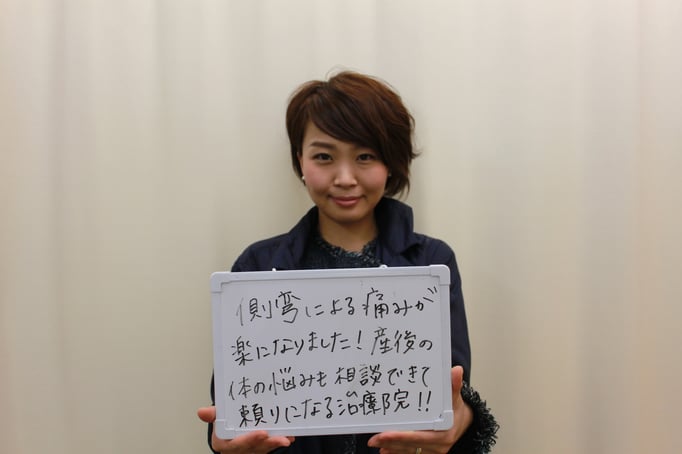 側弯による痛みが
楽になりました!産後の
体の悩みも相談できて
頼りになる治療院!!